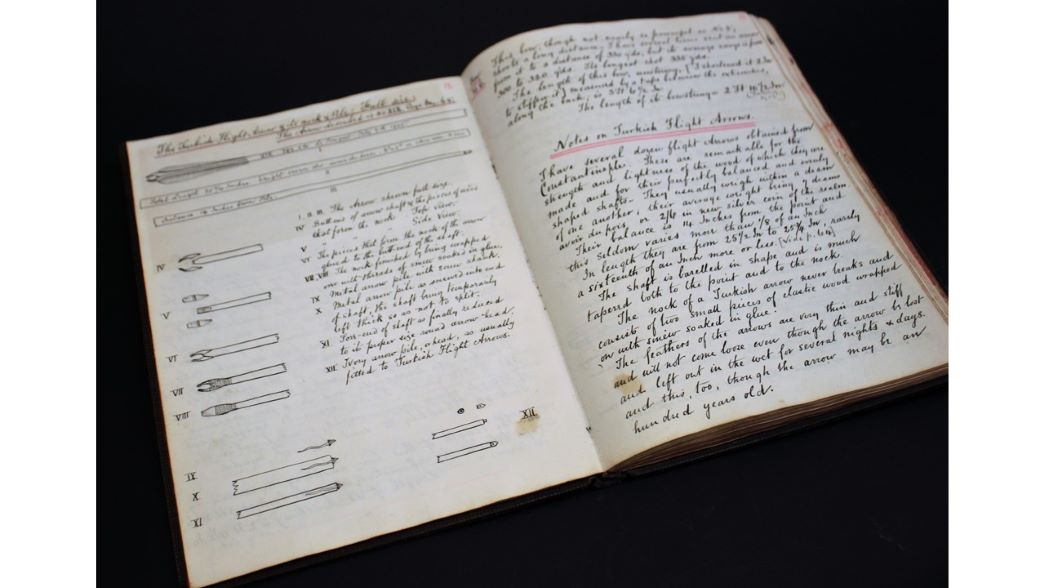 The Turkish Flight Arrow & its nock & Pile; Full size.
I. II. III. The Arrow shewn full size.
IV Buttons of arrow shaft & the pieces of wire
that form the nock.
Top view.
V Side View.
VI The pieces that form the nock of the arrow
glued to the butt-end of the shaft.
VII, VIII The nock finished by being wrapped
over with threads of sinew soaked in glue.
IX Metal arrow pile with round shank.
X Metal arrow pile as inserted in end
of shaft, the shaft being temporarily
left thick so as not to split.
XI Fore-end of shaft as finally reduced
to its proper size, round arrow-head.
XII Ivory arrow pile, or head, as usually
fitted to Turkish Flight Arrows.
IV
V
VI
VII
VIII
IX
X
XI
XII
This bow, though not nearly so powerful as No 2,
shoots a long distance. I have several times shot an arrow
from it to a distance of 330 yds, but its average range is from
300 to 320 yds. The longest shot 335 yds.
The length of this bow, unstrung, [I shortened it 2 in
to stiffen it] measured by a tape between the extremities,
along the back, is 3 ft 6 1/2 in
The length of its bowstring = 2 ft
Notes on Turkish Flight Arrows.
I have several dozen flight Arrows obtained from
Constantinople. These are remarkable for the
strength and lightness of the wood of which they are
made and for their perfectly balanced and evenly
shaped shafts. They usually weigh within a drams
of one another, their average weight being 7 drams
avoirdupois or 2/6 in new silver coin of the realm
Their balance is 14 Inches from the point and
this seldom varies more than 1/8 of an Inch
In length they are from 25 1/2 in to 25 3/4 in, rarely
a sixteenth of an Inch more or less. [Vide p. 64]
The shaft is barelled in shape and is much
tapered both to the point and to the nock.
The nock of a Turkish arrow never breaks and
consists of two small pieces of elastic wood wrapped
on with sinew soaked in glue.
The feathers of the arrows are very thin and stiff
and will not come loose even though the arrow be lost
and left out in the wet for several nights & days.
and this, too, though the arrow may be an
hundred years old.